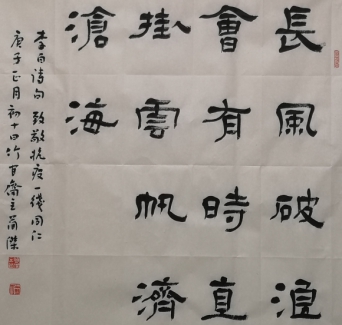 長風破浪
會有時直
掛雲帆濟
滄海
李白诗句 致敬抗疫一线同仁
庚子正月初十日竹官斋主萧傑